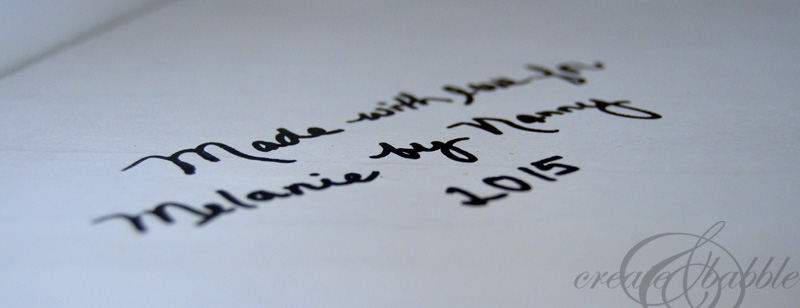 Made with love for
Melanie by Nanny
2015
create & babble